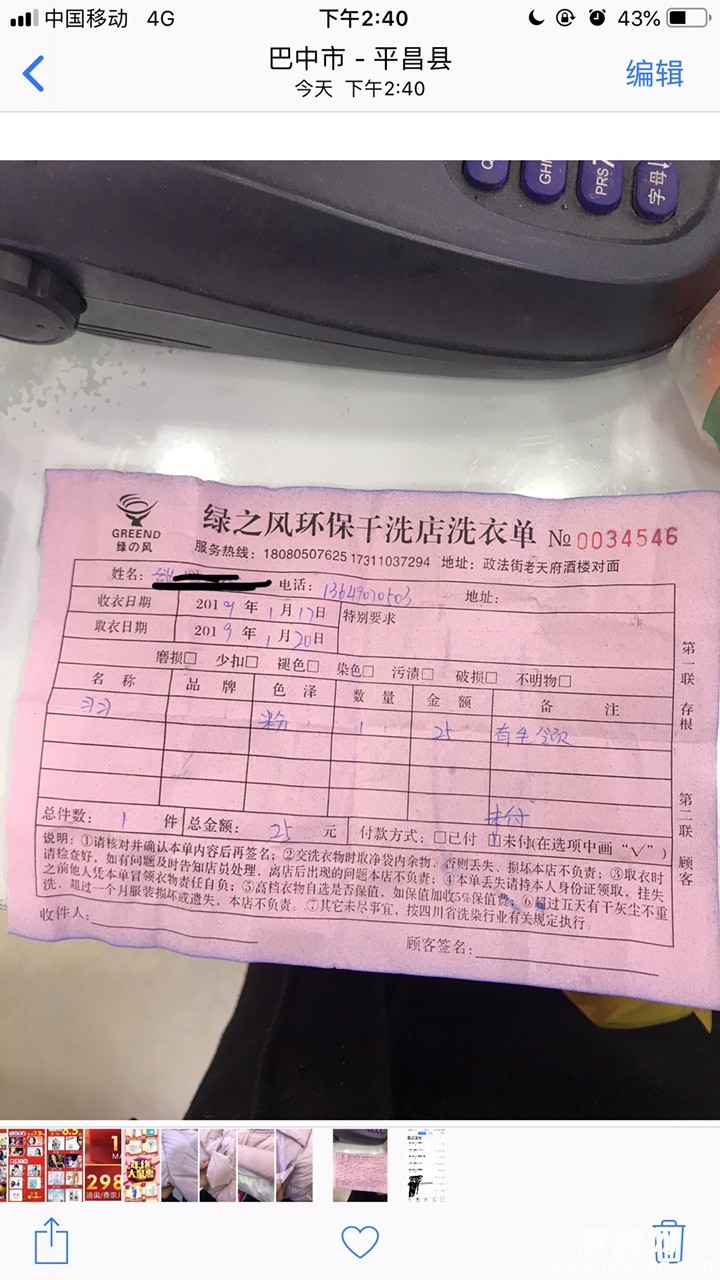 中国移动 4G 下午2:40 43%
巴中市 - 平昌县
今天 下午2:40
编辑
GHI
PRS7
GREEND
绿の风
绿之风环保干洗店洗衣单 № 0034546
服务热线：18080507625 17311037294 地址：政法街老天府酒楼对面
姓名： 电话：13649070503 地址：
收衣日期 2019年1月17日 特别要求
取衣日期 2019年1月20日
磨损□ 少扣□ 褪色□ 染色□ 污渍□ 破损□ 不明物□
名称 品牌 色泽 数量 金额 备注
羽羽 粉 1 25
未付
总件数：1件 总金额：25元 付款方式：□已付 □未付(在选项中画“√”)
说明：①请核对并确认本单内容后再签名；②交洗衣物时取净袋内余物，否则丢失、损坏本店不负责；③取衣时
请检查好，如有问题及时告知店员处理，离店后出现的问题本店不负责；④本单丢失请持本人身份证领取，挂失
之前他人凭本单冒领衣物责任自负；⑤高档衣物自选是否保值，如保值加收5%保值费；⑥超过五天有干灰尘不重
洗，超过一个月服装损坏或遗失，本店不负责。⑦其它未尽事宜，按四川省洗染行业有关规定执行。
收件人： 顾客签名：
第一联 存根
第二联 顾客
298